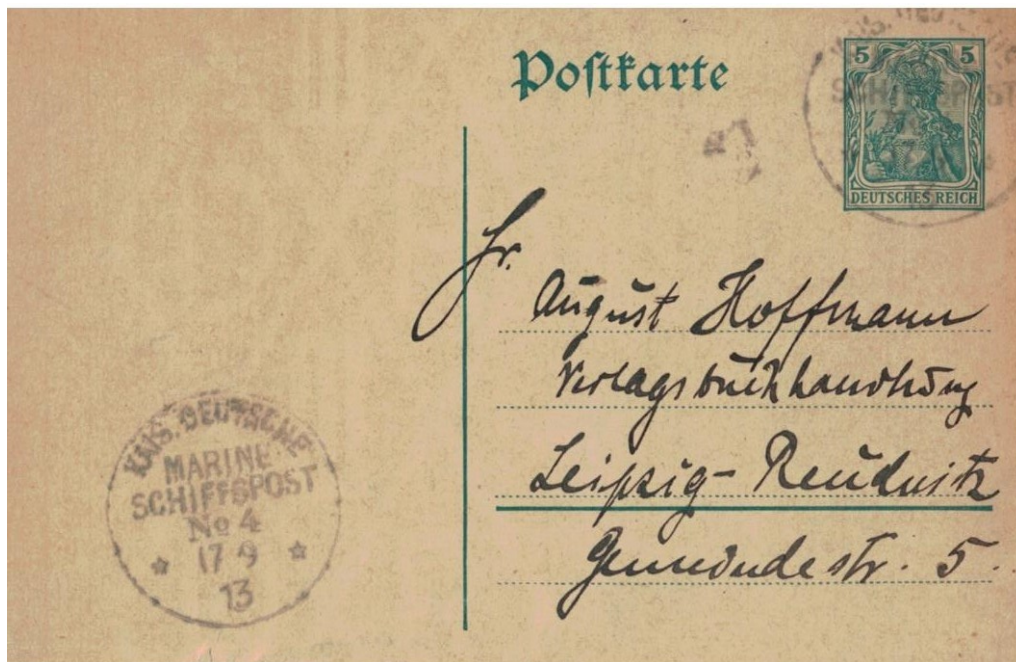 Postkarte
5 5
DEUTSCHES REICH
SCHIFFSPOST
Hr.
August Hoffmann
Verlagsbuchhandlung
Leipzig-Reudnitz
Gemeindestr. 5.
KAIS. DEUTSCHE
MARINE
SCHIFFSPOST
No 4
17 9
13